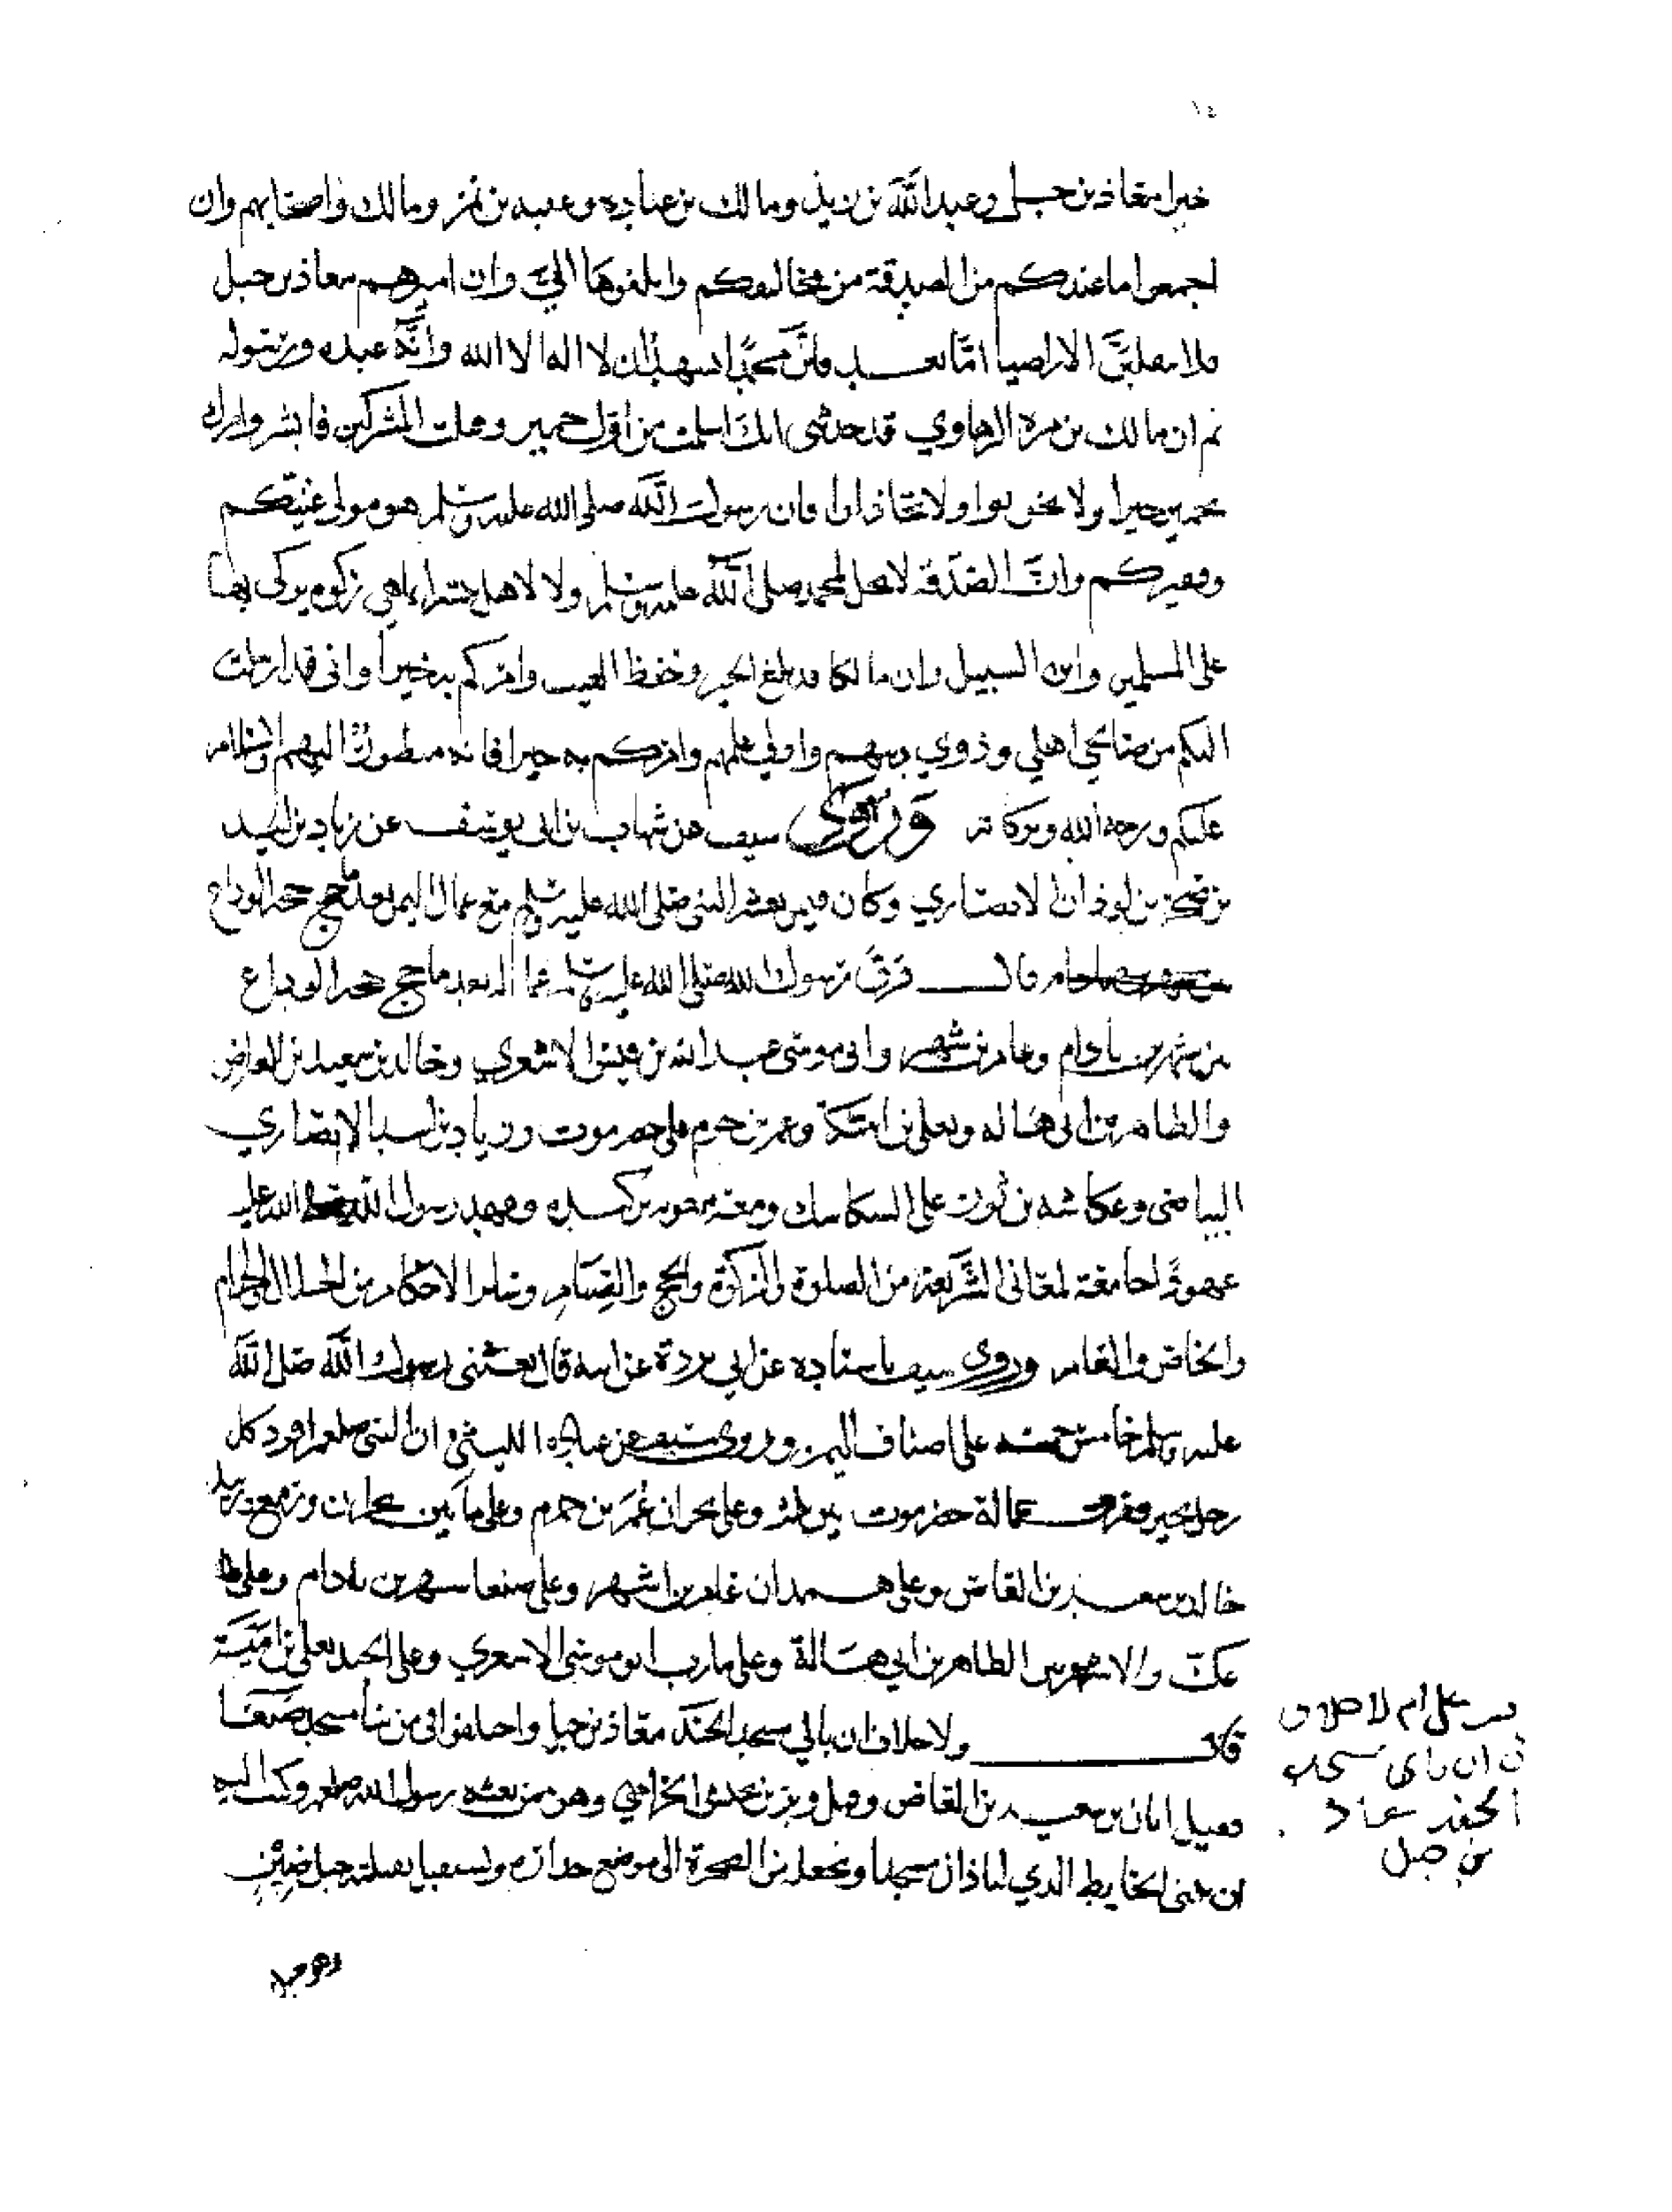 ١٤
خيرا معاذ بن جبل وعبدالله بن زيد ومالك بن عباده وعقبه بن نمر ومالك واصحابهم وان
اجمعوا ما عندكم من الصدقة من مخاليفكم وابلغوها الي وان اميرهم معاذ بن جبل
فلا ينقلبنَّ الا راضيا امّا بعد فان محمدًا يشهد ان لا اله الا الله وانَّه عبده ورسوله
ثم ان مالك بن مره الرهاوي قد حدثنى انك اسلمت من اول حمير وقتلت المشركين فابشر وامرك
بحمير خيرا ولا تخونوا ولا تخاذلوا فان رسول الله صلى الله عليه وسلم هو مولى غنيكم
وفقيركم وانَّ الصدقه لا تحل لمحمد صلى الله عليه وسلم ولا لاهل بيته انما هي زكوه يزكى بها
على المسلمين وابن السبيل وان مالكا قد بلغ الخبر وحفظ الغيب وامركم به خيرا وانى قد ارسلت
اليكم من صالحي اهلي وذوي دينهم واولي علمهم وامركم به خيرا فانه منظور اليهم والسلام
عليكم ورحمة الله وبركاته وروى سيف عن شهاب بن ابى يوسف عن زياد بن لبيد
بن صخر بن لوذان الانصاري وكان فيمن بعثه النبى صلى الله عليه وسلم مع عمال اليمن بعد ما حج حجة الوداع
قال فرق رسول الله صلى الله عليه وسلم عماله بعد ما حج حجة الوداع
بين شهر بن بادام وعامر بن شهر وابى موسى عبدالله بن قيس الاشعري وخالد بن سعيد بن العاص
والطاهر بن ابى هاله ويعلى بن امية وعمر بن حزم وعلى حضرموت وزياد بن لبيد الانصاري
البياضى وعكاشه بن ثور على السكاسك ومعاوية بن كنده وعهد رسول الله صلى الله عليه
عهودًا جامعة لمعانى الشريعة من الصلوة والزكوة والحج والصيام وساير الاحكام من الحلال والحرام
والخاص والعام وروى سيف باسناده عن ابي بردة عن ابيه قال بعثنى رسول الله صلى الله
عليه وسلم خامس خمسه على اصناف اليمن وروى سيف عن عباده الليثي ان النبى صلعم افرد كل
رجل بحيزه وفرق عمالة حضرموت بين ثلثه وعلى نجران عمر بن حزم وعلى ما بين نجران ورمع وزبيد
خالد بن سعيد بن العاص وعلى همدان عامر بن شهر وعلى صنعا شهر بن بادام وعلى
عك والاشعرين الطاهر بن ابي هالة وعلى مارب ابو موسى الاشعري وعلى الجند يعلى بن امية
قال ولا خلاف ان بانى مسجد الجند معاذ بن جبل واختلفوا فى من بنا مسجد صنعا
فقيل ابان بن سعيد بن العاص وقيل وبر بن يحنس الخزاعي وهو ممن بعثه رسول الله صلعم وكتب اليه
ان يبنى الحايط الذي لباذان مسجدا ويجعله من الصخرة الى موضع جداره ويستقبل بقبلته جبل ضين
وهو جبل
الجند معاذ
بن جبل